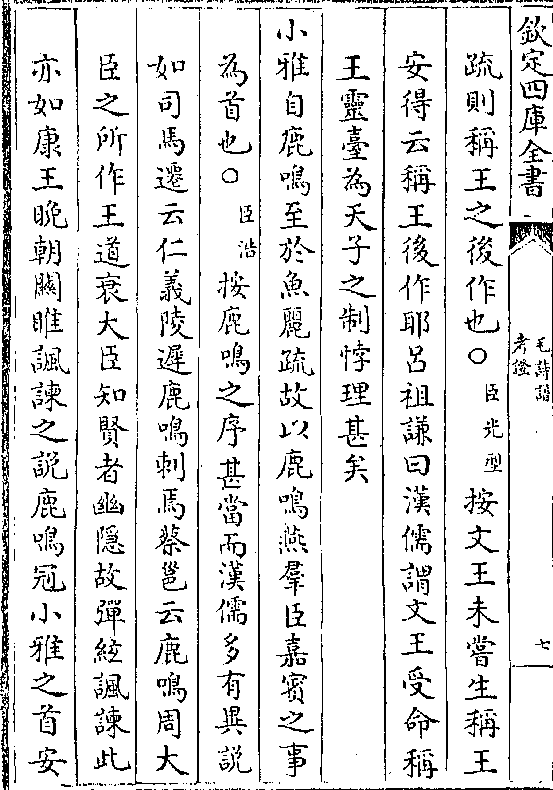 欽定四庫全書
毛詩譜
考證
七
疏則稱王之後作也○臣光型按文王未嘗生稱王
安得云稱王後作耶呂祖謙曰漢儒謂文王受命稱
王靈臺為天子之制悖理甚矣
小雅自鹿鳴至於魚麗疏故以鹿鳴燕羣臣嘉賓之事
為首也○臣浩按鹿鳴之序甚當而漢儒多有異説
如司馬遷云仁義陵遲鹿鳴刺焉蔡邕云鹿鳴周大
臣之所作王道衰大臣知賢者幽隠故彈絃諷諫此
亦如康王晚朝關睢諷諫之説鹿鳴冠小雅之首安